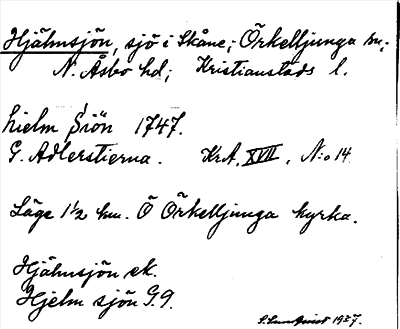 Hjälmsjön, sjö i Skåne; Örkelljunga sn;
N. Åsbo hd; Kristianstads l.
hielm Siön 1747.
G. Adlerstierna. KrA, XVII, N:o 14
Läge 1½ km. Ö Örkelljunga kyrka.
Hjälmsjön ek.
Hjelm sjön G.9.
1927.